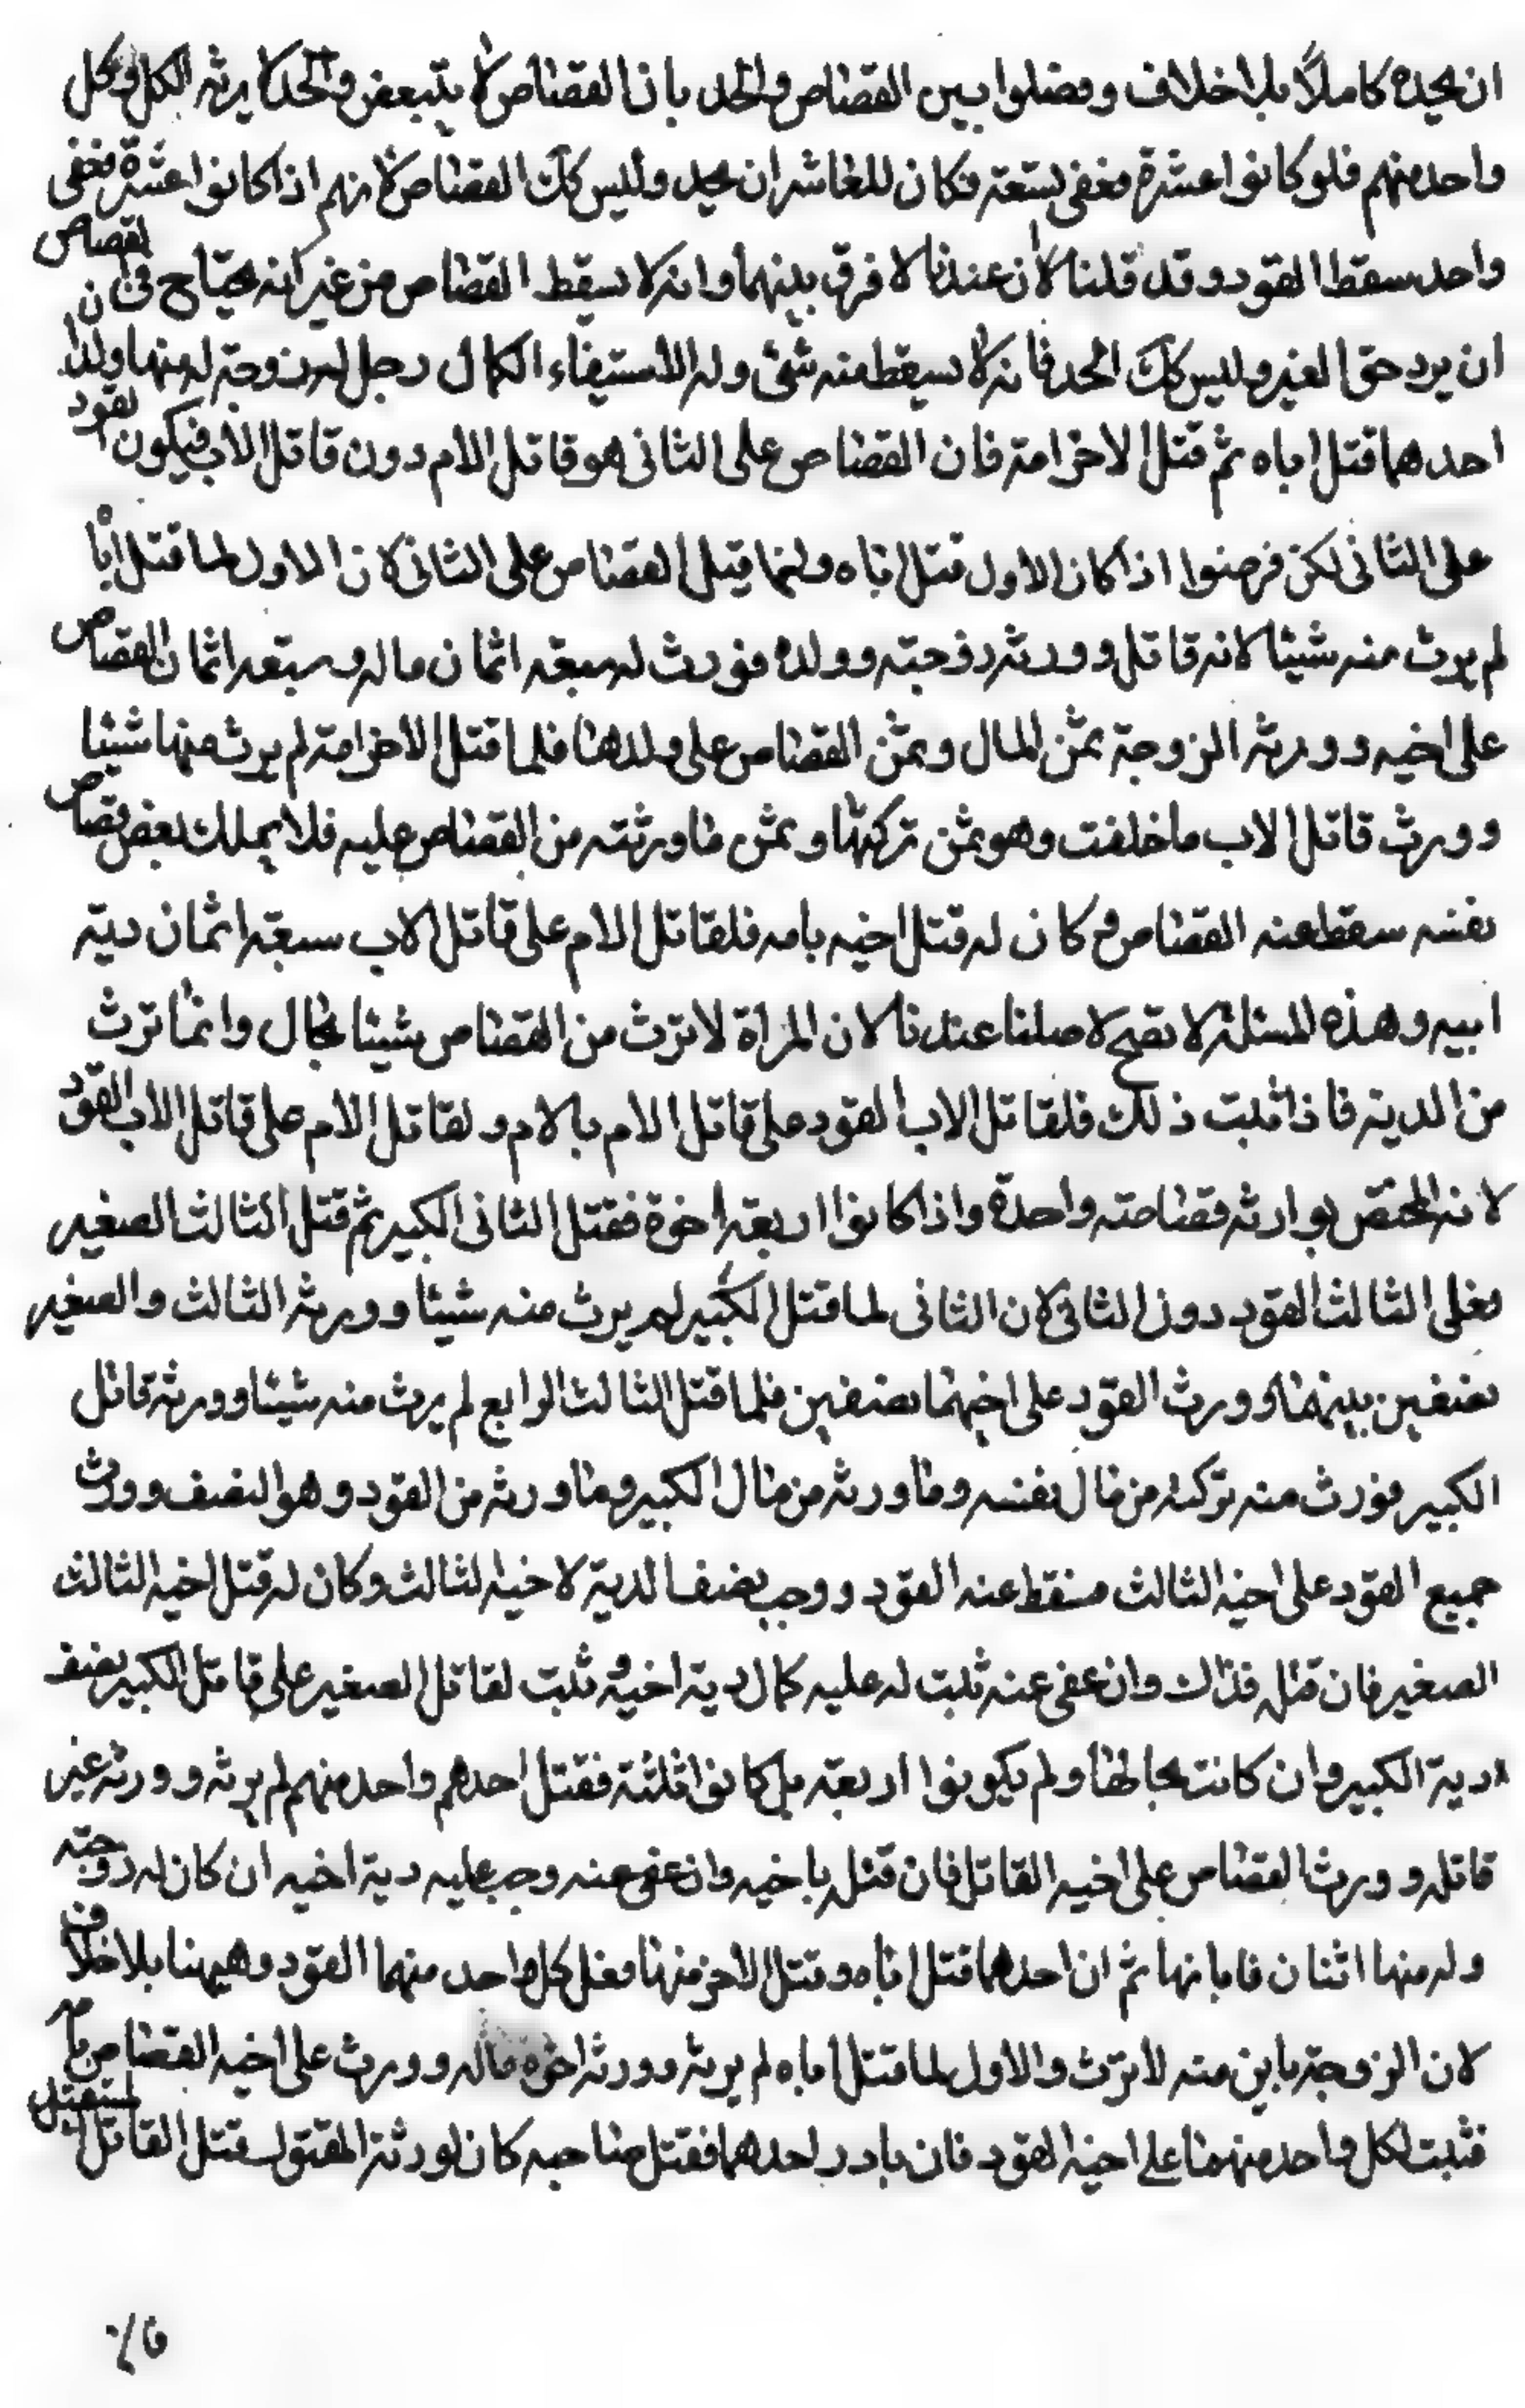 ان يحده كاملا بلا خلاف وفصلوا بين القصاص والحد بان القصاص لا يتبعض والحد لا يرثه الكل وكل
واحد منهم فلو كانوا عشرة فعفى تسعة فكان للعاشر ان يحد وليس كك القصاص لانهم اذا كانوا عشرة فعفى
واحد سقط القود وقد قلنا لان عندنا لا فرق بينهما وانه لا يسقط القصاص من غير انه يحتاج في القصاص ن
ان يرد حق الغير وليس كك الحد فانه لا يسقط منه شئ وله الاستيفاء الكمال رجل له زوجة له منها ولدا
احدهما قتل اباه ثم قتل الاخر امه فان القصاص على الثانى هو قاتل الام دون قاتل الاب فيكون القود
على الثانى لكن فرضوا اذا كان الاول قتل اباه وانما قيل القصاص على الثانى لان الاول لما قتل ابا
لم يرث منه شيئا لانه قاتل وورثه زوجته وولده فورث له سبعة اثمان ماله وسبعة اثمان القصاص
على اخيه وورثه الزوجة ثمن المال وثمن القصاص على ولدها فلما قتل الاخر امه لم يرث منها شيئا
وورث قاتل الاب ما خلفت وهو ثمن تركتها وثمن ما ورثته من القصاص عليه فلا يملك بعض قصاص
نفسه سقط عنه القصاص وكان له قتل اخيه بامه فلقاتل الام على قاتل الاب سبعة اثمان دية
ابيه وهذه المسئلة لا تصح لاصلنا عندنا لان المراة لا ترث من القصاص شيئا بحال وانما ترث
من الدية فاذا ثبت ذلك فلقاتل الاب القود على قاتل الام بالام ولقاتل الام على قاتل الاب القود
لانه المختص بوارثه فقصاصته واحدة واذا كانوا اربعة اخوة فقتل الثانى الكبير ثم قتل الثالث الصغير
فعلى الثالث القود دون الثانى لان الثانى لما قتل الكبير لم يرث منه شيئا وورثه الثالث والصغير
نصفين بينهما وورث القود على اخيهما نصفين فلما قتل الثالث الرابع لم يرث منه شيئا وورثه قاتل
الكبير فورث منه تركته من مال نفسه وما ورثه من مال الكبير وما ورثه من القود وهو النصف وورث
جميع القود على اخيه الثالث فسقط عنه القود ووجب نصف الدية لاخيه الثالث وكان له قتل اخيه الثالث
الصغير فان قتله فذاك وان عفى عنه ثبت له عليه كمال دية اخيه و ثبت لقاتل الصغير على قاتل الكبير نصف
دية الكبير وان كانت بحالها ولم يكونوا اربعة بل كانوا ثلثة فقتل احدهم واحد منهم لم يرثه وورثه غير
قاتله وورث القصاص على اخيه القاتل فان قتل باخيه وان عفى عنه وجب عليه دية اخيه ان كان له زوجة
وله منها اثنان فابانها ثم ان احدهما قتل اباه وقتل الاخر منها فعلى كل واحد منهما القود وهيهنا بلا خلاف
لان الزوجة باين منه لا ترث والاول لما قتل اباه لم يرثه وورثه اخوه ماله وورث على اخيه القصاص
فثبت لكل واحد منهما على اخيه القود فان بادر احدهما فقتل صاحبه كان لورثة المقتول قتل القاتل